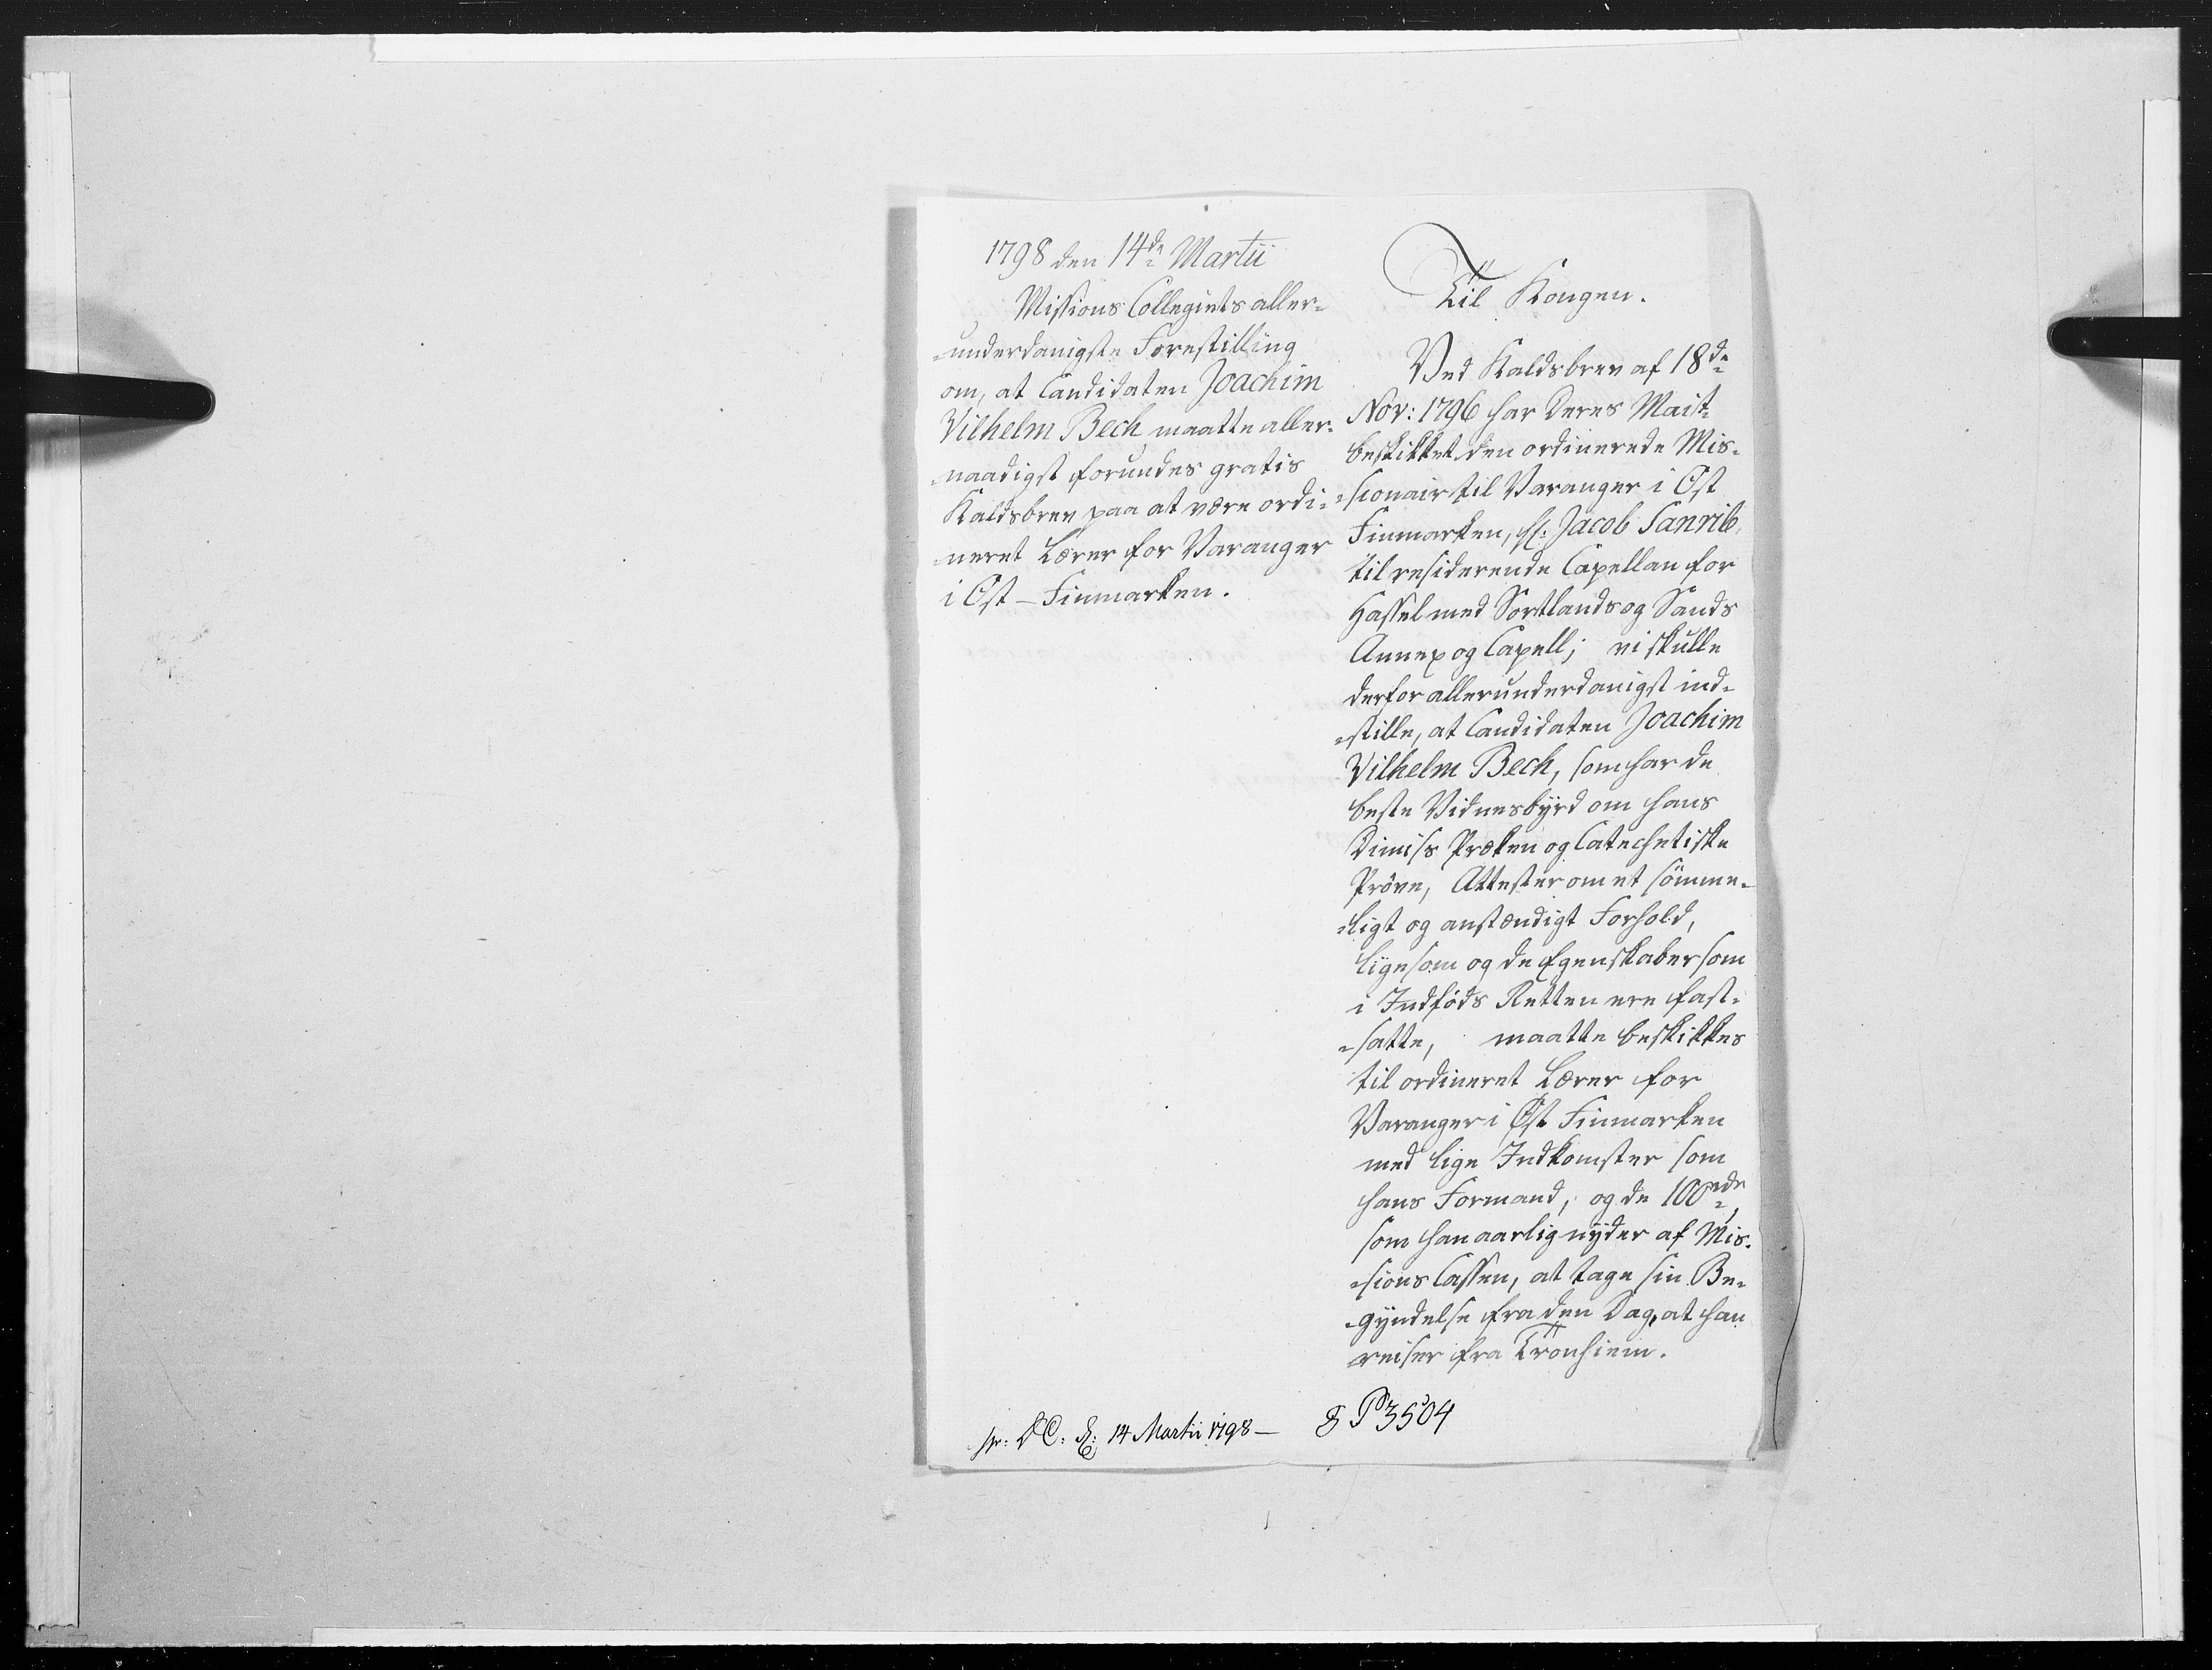 1798 den 14de Martii
Missions Collegiets aller-
-underdanigste Forestilling
om, at Candidaten Joachim
Vilhelm Bech maatte aller-
naadigst forundes gratis
Kaldsbrev paa at være ordi-
neret Lærer for Varanger
i Øst-Finmarken.
Til Kongen.
Ved Kaldsbrev af 18de
Nov: 1796 har Deres Maist:
beskikket den ordinerede Mis-
-sionair til Varanger i Øst
Finmarken, Hr: Jacob Sanrib
til residerende Capellan for
Hassel med Sortlands og Sands
Annex og Capell; vi skulle
derfor allerunderdanigst ind-
-stille, at Candidaten Joachim
Vilhelm Bech, som har de
beste Vidnesbyrd om hans
Dimiss Præken og Catechetiske
Prøve, Attester om et sömme-
-ligt og anstændigt Forhold,
ligesom og de Egenskaber som
i Indføds Retten ere fast-
-satte, maatte beskikkes
til ordineret Lærer for
Varanger i Øst Finmarken
med lige Indkomster som
hans Formand, og de 100rdr,
som han aarlig nyder af Mis-
-sions Cassen, at tage sin Be-
-gyndelse fra den Dag, at han
reiser fra Tronhiem.
pr: DC: d: 14 Martii 1798 -
P 3504